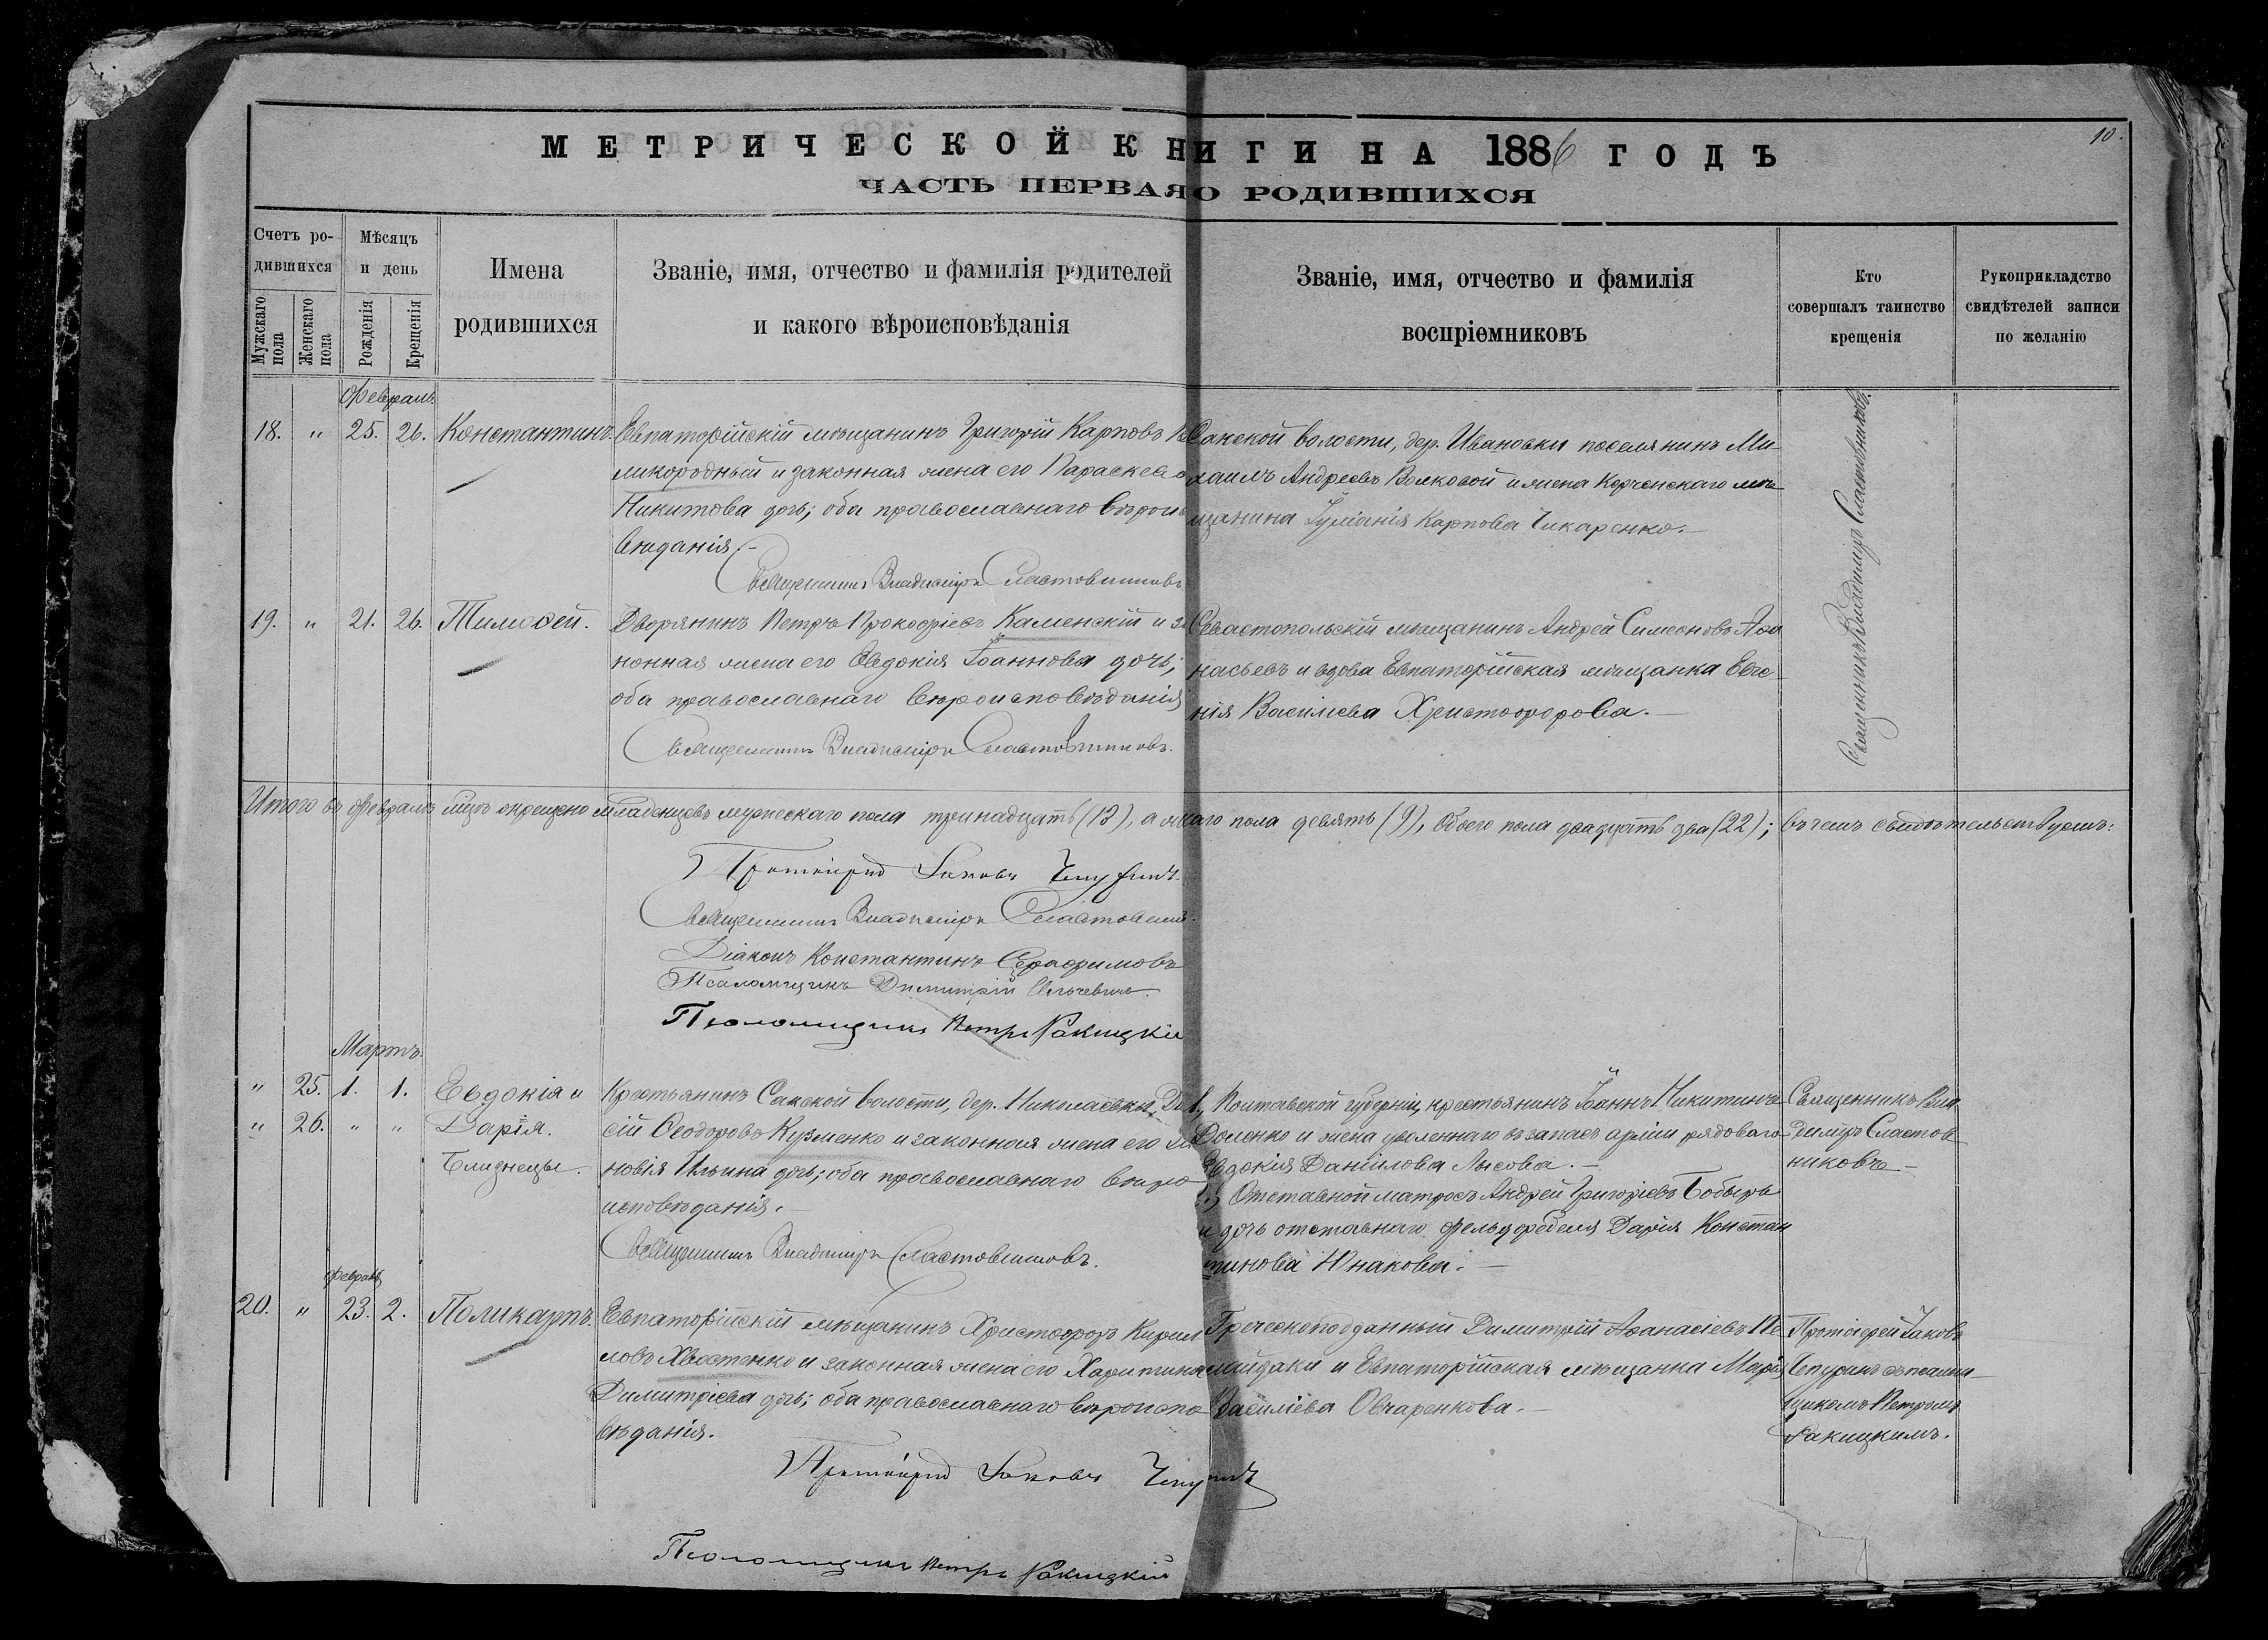 МЕТРИЧЕСКОЙ КНИГИ НА 1886 ГОДЪ
10.
ЧАСТЬ ПЕРВАЯ О РОДИВШИХСЯ
Счетъ ро-
дившихся
Мужскаго пола
Женскаго пола
Мѣсяцъ
и день
Рожденія
Крещенія
Имена
родившихся
Званіе, имя, отчество и фамилія родителей
и какого вѣроисповѣданія
Званіе, имя, отчество и фамилія
воспріемниковъ
Кто
совершалъ таинство
крещенія
Рукоприкладство
свидѣтелей записи
по желанію
Февраль.
18. " 25. 26. Константинъ.
Евпаторійскій мѣщанинъ Григорій Карповъ
ликородный и законная жена его Параскева
Никитова дочь; оба православнаго вѣроис
вѣданія.-
Священникъ Владиміръ Сластовниковъ
Сакской волости, дер. Ивановки поселянинъ Ми-
хаилъ Андреевъ Волковой и жена Керченскаго мѣ
щанина Іуліанія Карпова Чикаренко.-
Священникъ Владиміръ Сластовниковъ.
19. " 21. 26. Тимоѳей.
Дворянинъ Петръ Прокофіевъ Каменскій и за
конная жена его Евдокія Іоаннова дочь;
оба православнаго вѣроисповѣданія
Священникъ Владиміръ Сластовниковъ.
Севастопольскій мѣщанинъ Андрей Симеоновъ Аѳа
насьевъ и вдова Евпаторійская мѣщанка Евге-
нія Васильева Христофорова.-
Итого въ февралѣ мцѣ окрещено младенцевъ мужескаго пола тринадцать (13), а жен аго пола девять (9), обоего пола двадцать два (22); въ чемъ свидѣтельствуемъ:
Протоіерей Іаковъ Чепуринъ.
Священникъ Владиміръ Сластовник
Діаконъ Константинъ Серафимовъ
Псаломщикъ Димитрій
Псаломщикъ Петръ Ракицкій
Мартъ.
" 25. 1. 1. Евдокія и
" 26. " " Дарія.
Близнецы.
Крестьянинъ Сакской волости, дер. Николаевки, Ди
сій Ѳеодоровъ Кузменко и законная жена его Зи
новія Ильина дочь; оба православнаго вѣро
исповѣданія.-
Священникъ Владиміръ Сластовниковъ.
1., Полтавской губерніи, крестьянинъ Іоаннъ Никитинъ
Доленко и жена уволеннаго въ запасъ арміи рядоваго
Евдокія Даніилова Лысова.-
2., Отставной матросъ Андрей Григоріевъ Бобырь
и дочь отставнаго фельдфебеля Дарія Констан
тинова Юнакова.-
Священникъ Вла
диміръ Сластов
никовъ.-
Февраль
20. " 23. 2. Поликарпъ.
Евпаторійскій мѣщанинъ Христофоръ Кирил
ловъ Хвостенко и законная жена его Харитина
Димитріева дочь; оба православнаго вѣроиспо
вѣданія.
Протоіерей Іаковъ Чепуринъ
Псаломщикъ Петръ Ракицкій
Греческоподданный Димитрій Аѳанасіевъ Пе
и Евпаторійская мѣщанка Марія
Василіева Овчаренкова.-
Протоіерей Іаковъ
Чепуринъ съ псалом-
щикомъ Петромъ
Ракицкимъ.